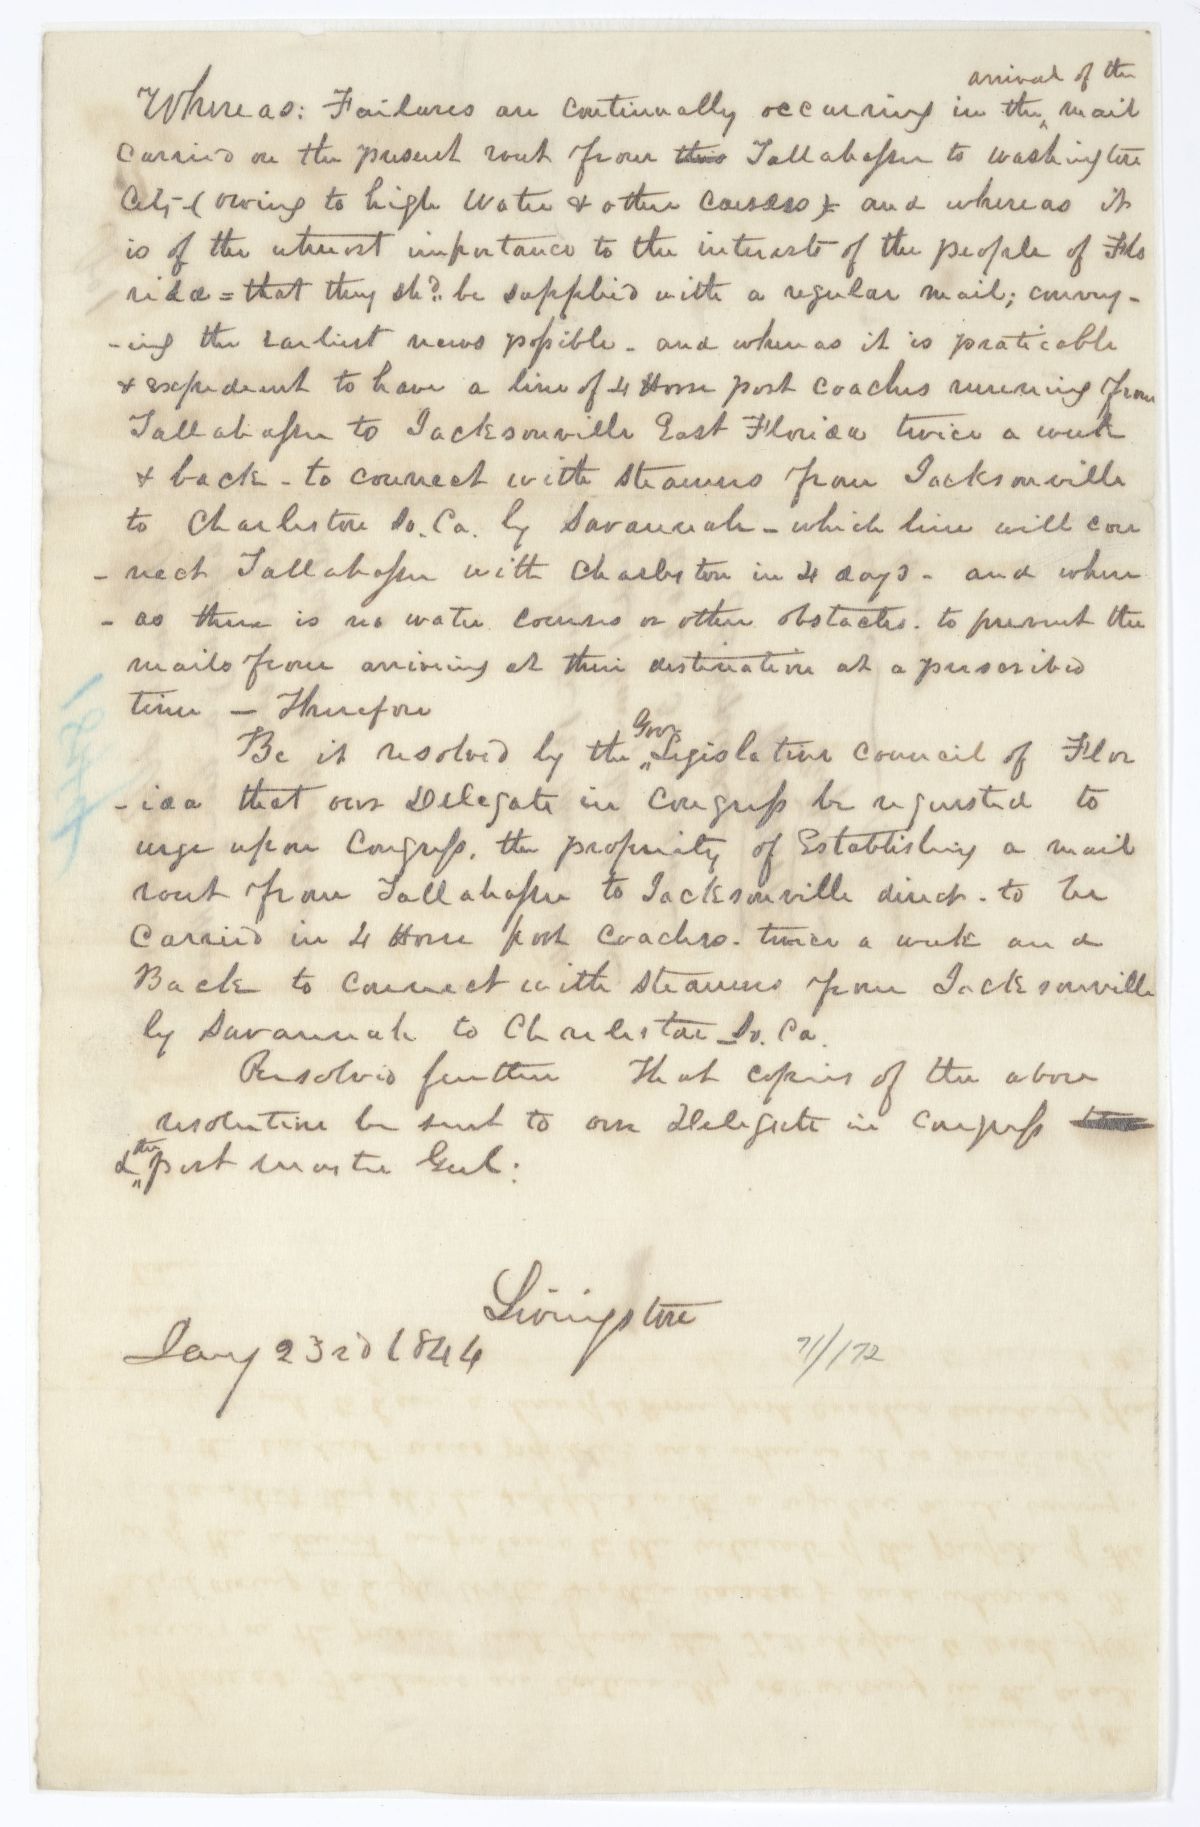 arrival of the
Whereas: Failures are continually occurring in the ‸ mail
carried on the present rout from this Tallahassee to Washington
City - (owing to high water & other causes) - and whereas it
is of the utmost importance to the interests of the people of Flo
rida = that they shd. be supplied with a regular mail; convey-
-ing the earliest news possible - and whereas it is praticable
& expedient to have a line of 4 Horse post coaches running from
Tallahassee to Jacksonville East Florida twice a week
& back - to connect with steamers from Jacksonville
to Charleston So. Ca. by Savannah - which line will con
- nect Tallahassee with Charleston in 4 days - and where
- as there is no water courses or other obstacles. to prevent the
mails from arriving at their destination at a prescribed
time — Therefore
Govr
Be it resolved by the " Legislative council of Flor
- ida that our Delegate in Congress be requested to
urge upon Congress, the propriety of Establishing a mail
rout from Tallahassee to Jacksonville direct - to be
carried in 4 Horse post coaches - twice a week and
Back to connect with steamers from Jacksonville
by Savannah to Charleston So. Ca.
Resolved further That copies of the above
resolution be sent to our Delegate in Congress
the
& " post master Genl:
Livingston
Jany 23rd 1844
71/172
1844